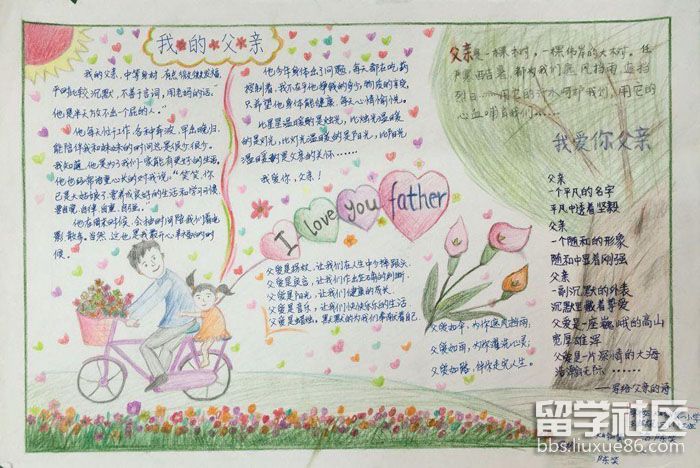 我的父亲
我的父亲，中等身材，
平时比较沉默，不善于言词，用老妈的话：
他是半天放不出一个屁的人。"
他每天忙于工作，各种奔波，早出晚归，
能陪伴我和妹妹的时间总是很少很少。
我知道，他是为了我们家能有更好的生活。
他也经常语重心长的对我说："笑笑，你
已是大姑娘了，要养成良好的生活和学习习惯，
要自尊、自律、自重、自强。
他在周末时候，会抽时间陪我们看电
影，散步。当然，这也是我最开心幸福的时
候。
他今年身体出了问题，每天都在吃药
控制着，我不在乎他挣钱的多少，物质的享受，
只希望他身体能健康，每天心情愉悦。
比星星温暖的是烛光，比烛光温暖
的是灯光，比灯光温暖的是阳光，比阳光
温暖的是父亲的关怀……
我爱你，父亲！
I love you father
父爱是拐杖，让我们在人生中少摔跟头。
父爱是良言，让我们作出正确的判断。
父爱是阳光，让我们健康的成长。
父爱是音乐，让我们快快乐乐的生活。
父爱是蜡烛，默默的为我们奉献着自己。
父亲是一棵树，一棵伟岸的大树。任
严寒酷暑，都为我们遮风挡雨，遮挡
烈日……用它的汁水呵护我们，用它的
心血哺育我们……
我爱你父亲
父亲
一个平凡的名字
平凡中透着坚毅
父亲
一个随和的形象
随和中显着刚强
父亲
一副沉默的外表
沉默里藏着挚爱
父爱是一座巍峨的高山
宽厚雄浑
父爱是一片深情的大海
浩瀚无际……
——写给父亲的诗
父爱如伞，为你遮风挡雨，
父爱如雨，为你濯洗心灵；
父爱如路，伴你走完人生。
留学社区
bbs.liuxue86.com
陈笑